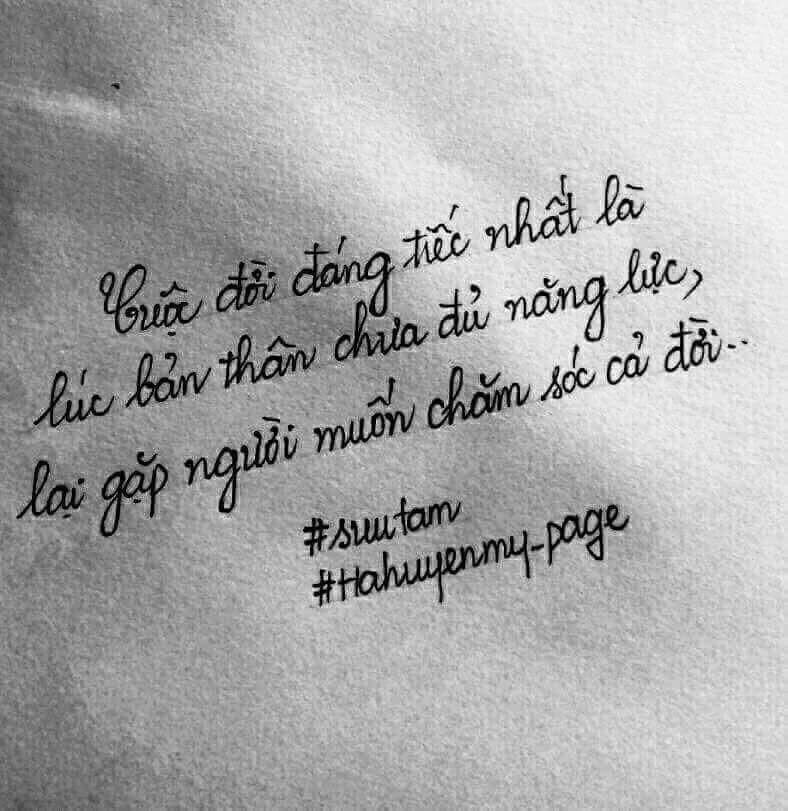 Cuộc đời đáng tiếc nhất là
lúc bản thân chưa đủ năng lực,
lại gặp người muốn chăm sóc cả đời..
#suutam
#Hahuyenmy_page